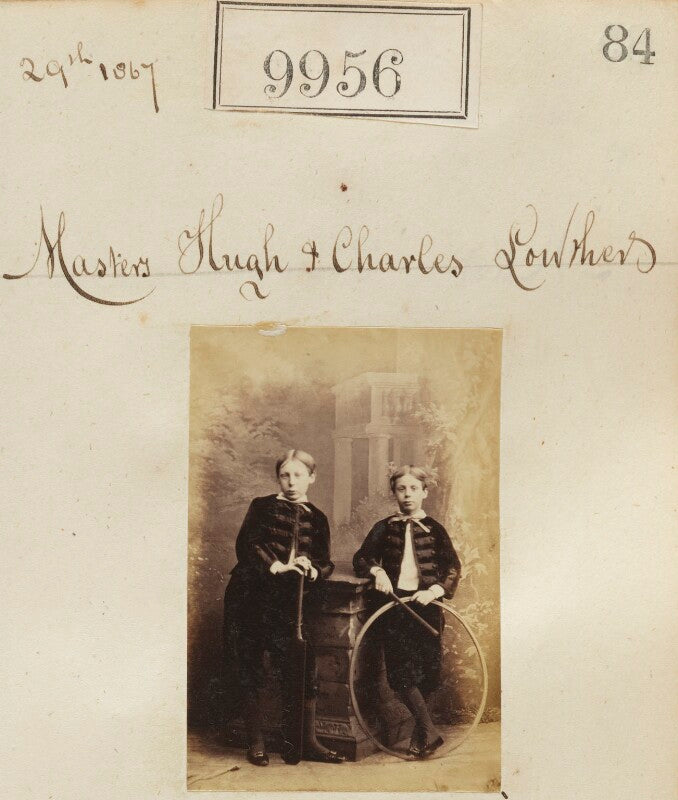 29th 1867
9956
84
Masters Hugh & Charles Lowthers